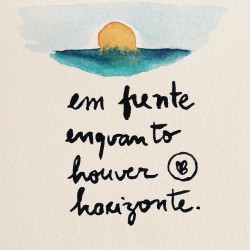 em frente
enquanto
houver
horizonte.